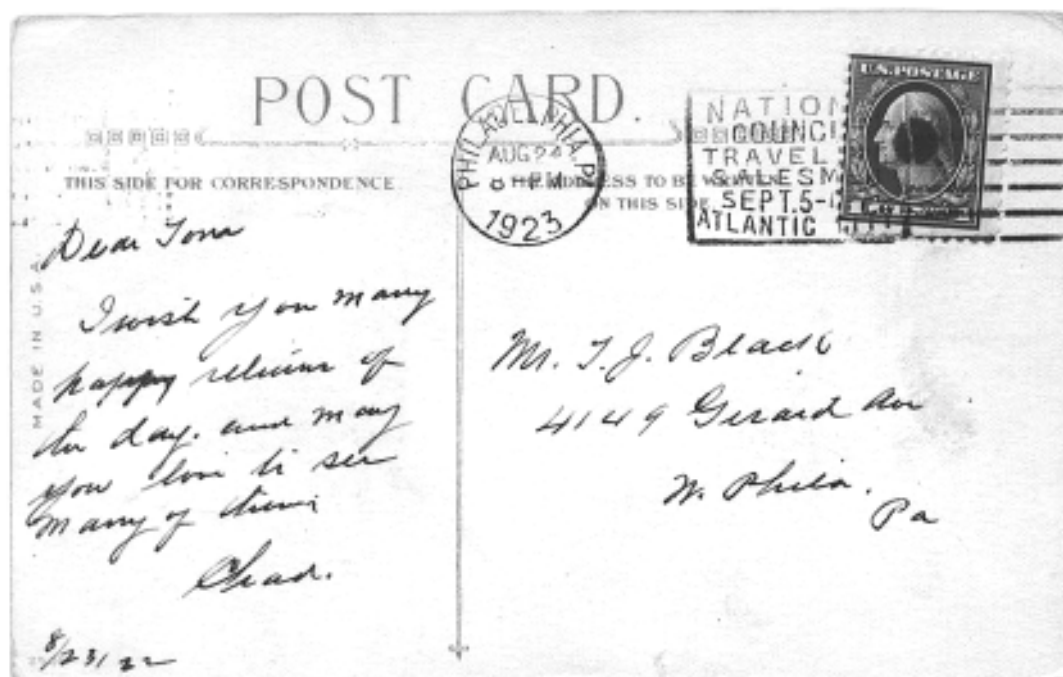 POST CARD.
THIS SIDE FOR CORRESPONDENCE.
THE ADDRESS TO BE
ON THIS SIDE.
MADE IN U.S.A.
PHILADELPHIA, PA
AUG 24
PM
1923
NATION
COUNCI
TRAVEL
SALESM
SEPT. 5-
ATLANTIC
U.S. POSTAGE
Dear Tom
I wish you many
happy returns of
the day. and may
you live to see
many of them
Chad.
8/23/22
Mr. T. J. Black
4149 Girard Ave
W. Phila.
Pa